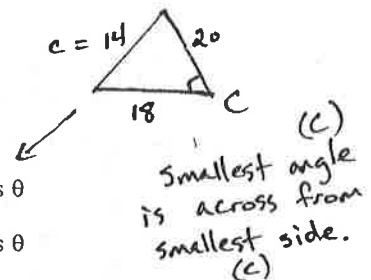 c = 14
20
18
C
(C)
smallest angle
is across from
smallest side.
(c)
s θ
s θ